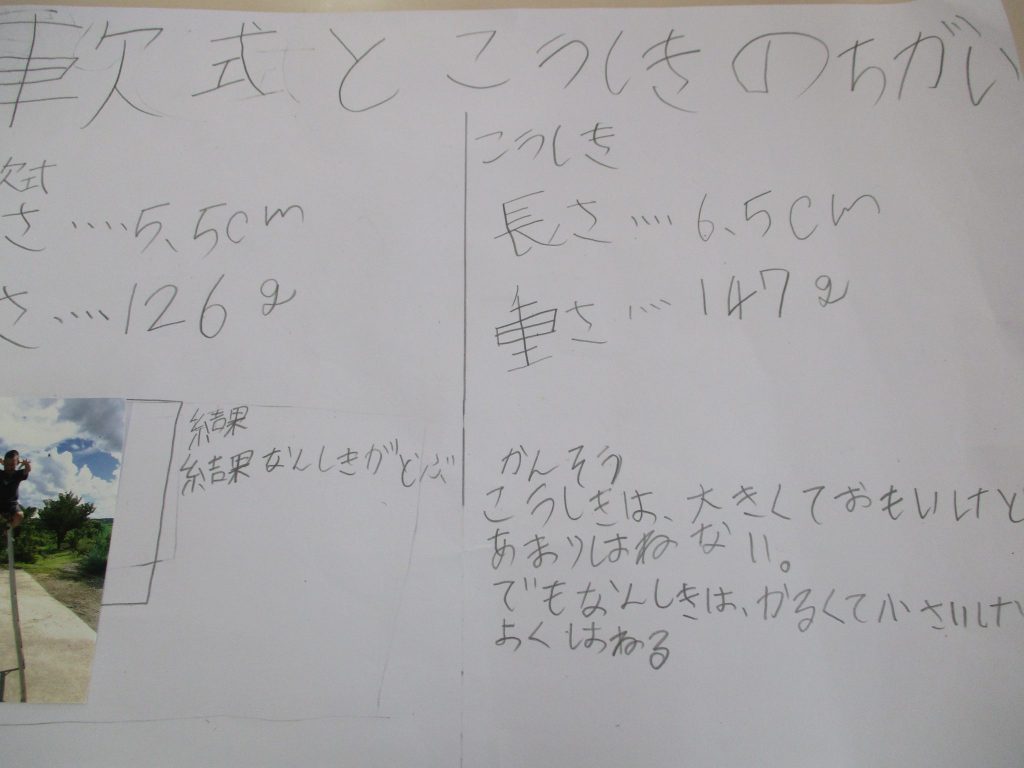 軟式とこうしきのちがい
軟式
さ‥‥5.5cm
さ‥‥126g
結果
結果なんしきがとぶ
こうしき
長さ‥‥6.5cm
重さ‥‥147g
かんそう
こうしきは、大きくておもいけど
あまりはねない。
でもなんしきは、かるくて小さいけど
よくはねる